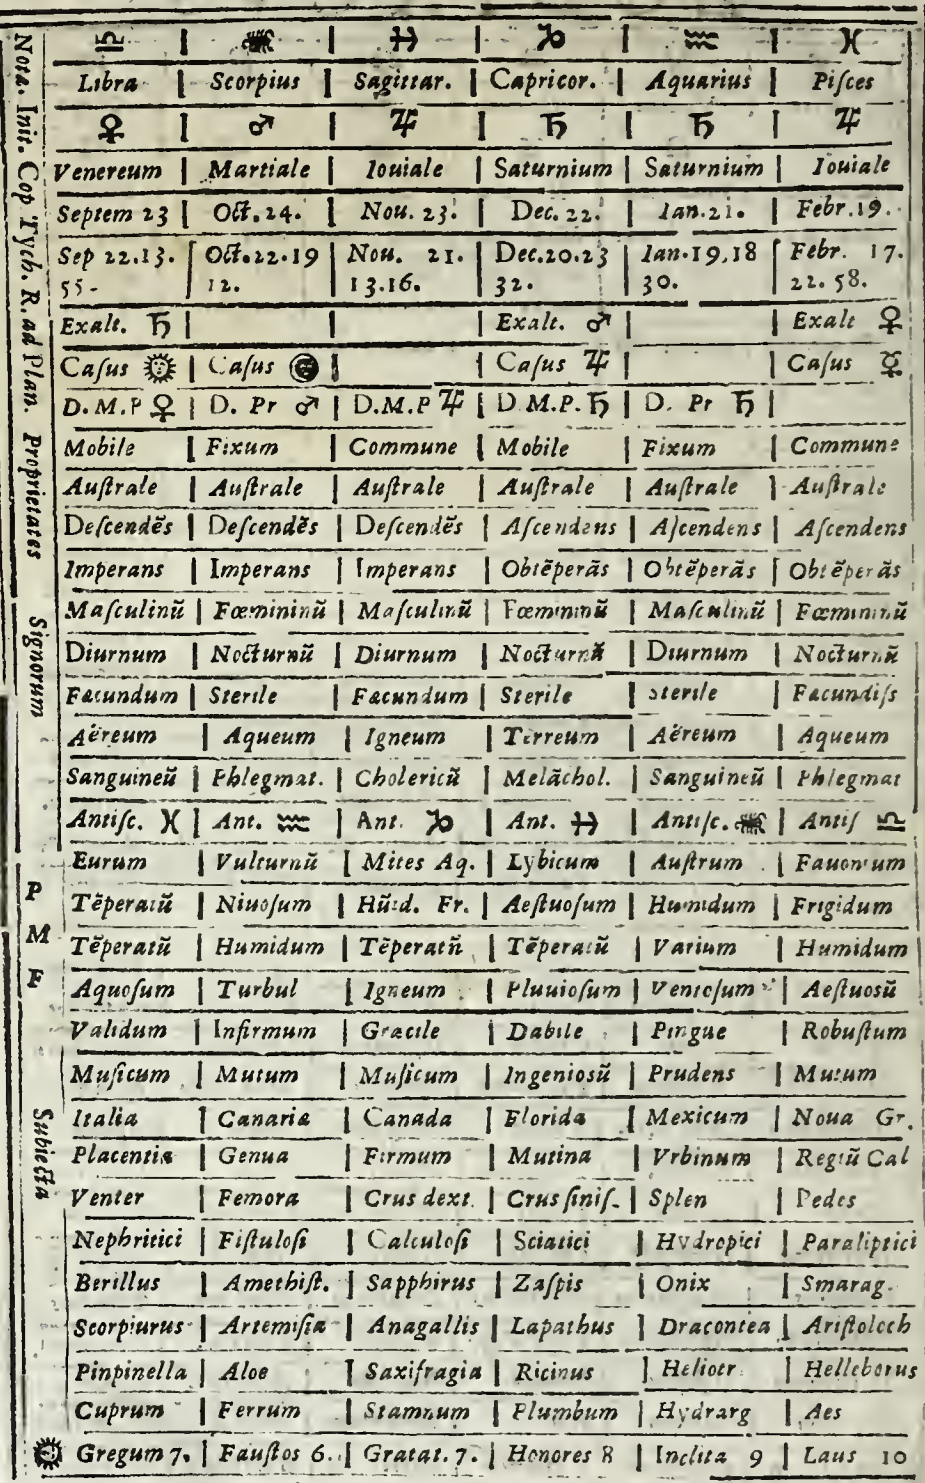 ♎ | ♏ | ♐ | ♑ | ♒ | ♓
Libra | Scorpius | Sagittar. | Capricor. | Aquarius | Piſces
♀ | ♂ | ♃ | ♄ | ♄ | ♃
Venereum | Martiale | Iouiale | Saturnium | Saturnium | Iouiale
Septem 23 | Oct. 24. | Nou. 23. | Dec. 22. | Ian. 21. | Febr. 19.
Sep 22.13. | Oct. 22.19 | Nou. 21. | Dec. 20.23 | Ian. 19,18 | Febr. 17.
55. | 12. | 13.16. | 32. | 30. | 22. 58.
Exalt. ♄ | | | Exalt. ♂ | | Exalt ♀
Caſus ☉ | Caſus ☽ | | Caſus ♃ | | Caſus ☿
D. M. P ♀ | D. Pr ♂ | D.M.P ♃ | D M.P. ♄ | D. Pr ♄ |
Mobile | Fixum | Commune | Mobile | Fixum | Commune
Auſtrale | Auſtrale | Auſtrale | Auſtrale | Auſtrale | Auſtrale
Deſcendẽs | Deſcendẽs | Deſcendẽs | Aſcendens | Aſcendens | Aſcendens
Imperans | Imperans | Imperans | Obtẽperãs | Obtẽperãs | Obtẽperãs
Maſculinũ | Fœmininũ | Maſculinũ | Fœmininũ | Maſculinũ | Fœmininũ
Diurnum | Nocturnũ | Diurnum | Nocturnũ | Diurnum | Nocturnũ
Facundum | Sterile | Facundum | Sterile | Sterile | Facundiſs
Aëreum | Aqueum | Igneum | Terreum | Aëreum | Aqueum
Sanguineũ | Phlegmat. | Cholericũ | Melãchol. | Sanguineũ | Phlegmat
Antiſc. ♓ | Ant. ♒ | Ant. ♑ | Ant. ♐ | Antiſc. ♏ | Antiſ ♎
Eurum | Vulturnũ | Mites Aq. | Lybicum | Auſtrum | Fauonium
Tẽperatũ | Niuoſum | Hũid. Fr. | Aeſtuoſum | Humidum | Frigidum
Tẽperatũ | Humidum | Tẽperatũ | Tẽperatũ | Varium | Humidum
Aquoſum | Turbul | Igneum | Pluuioſum | Ventoſum | Aeſtuosũ
Validum | Infirmum | Gracile | Dabile | Pingue | Robuſtum
Muſicum | Mutum | Muſicum | Ingeniosũ | Prudens | Mutum
Italia | Canaria | Canada | Florida | Mexicum | Noua Gr.
Placentia | Genua | Firmum | Mutina | Vrbinum | Regiũ Cal
Venter | Femora | Crus dext. | Crus ſiniſ. | Splen | Pedes
Nephritici | Fiſtuloſi | Calculoſi | Sciatici | Hydropici | Paraliptici
Berillus | Amethiſt. | Sapphirus | Zaſpis | Onix | Smarag.
Scorpiurus | Artemiſia | Anagallis | Lapathus | Dracontea | Ariſtoloch
Pinpinella | Aloe | Saxifragia | Ricinus | Heliotr | Helleborus
Cuprum | Ferrum | Stamnum | Plumbum | Hydrarg | Aes
☉ Gregum 7. | Fauſtos 6. | Gratat. 7. | Honores 8 | Inclita 9 | Laus 10
Nota. Init. Cop Tych. R. ad Plan. Proprietates Signorum
P
M
F
Subiecta